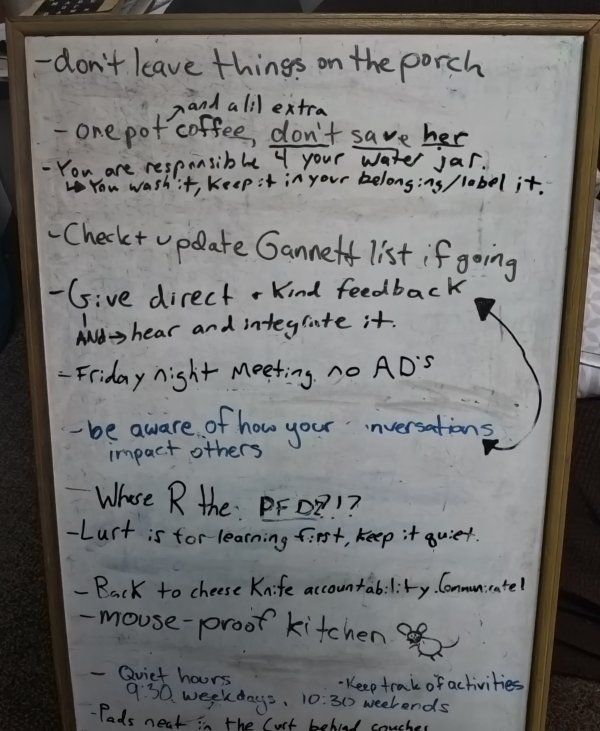 -don't leave things on the porch
and a lil extra
- one pot coffee, don't save her
-You are responsible 4 your water jar.
↳You wash it, keep it in your belonging/label it.
-Check + update Gannett list if going
-Give direct + Kind feedback
AND→ hear and integrate it.
-Friday night Meeting no AD's
-be aware of how your nversations
impact others
-Where R the PFDZ?!?
-Lurt is for learning first, keep it quiet.
- Back to cheese Knife accountability. Communicate!
-mouse-proof kitchen
- Quiet hours
9:30 weekdays, 10:30 weekends
-Keep trak of activities
-Pads neat in the Lurt behind couches